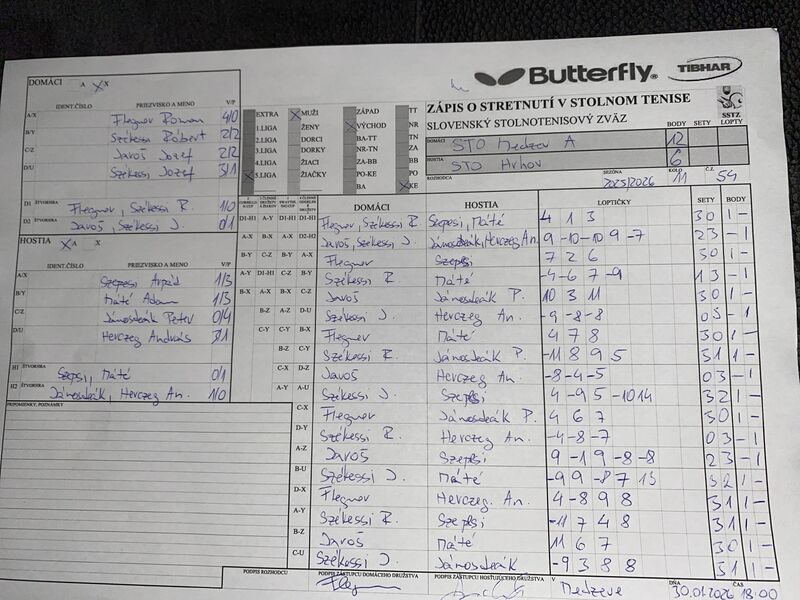 Butterfly® TIBHAR
ZÁPIS O STRETNUTÍ V STOLNOM TENISE
SLOVENSKÝ STOLNOTENISOVÝ ZVÄZ SSTZ
BODY SETY LOPTY
DOMÁCI STO Medzev A 12
HOSTIA STO Hrhov 6
ROZHODCA SEZÓNA 2025/2026 KOLO 11 Č.Z. 54
EXTRA X MUŽI ZÁPAD TT
1.LIGA ŽENY X VÝCHOD NR
2.LIGA DORCI BA-TT TN
3.LIGA DORKY NR-TN ZA
4.LIGA ŽIACI ZA-BB BB
X 5.LIGA ŽIAČKY PO-KE PO
BA X KE
DOMÁCI A X X
IDENT.ČÍSLO PRIEZVISKO A MENO V/P
A/X Flegner Roman 4/0
B/Y Székessi Róbert 2/2
C/Z Daroš Jozef 2/2
D/U Székessi Jozef 3/1
D1 Flegner, Székessi R. 1/0
D2 Daroš, Székessi J. 0/1
HOSTIA X A X
IDENT.ČÍSLO PRIEZVISKO A MENO V/P
A/X Szepesi Arpád 1/3
B/Y Máté Adam 1/3
C/Z Jánosdeák Peter 0/4
D/U Herczeg András 3/1
H1 ŠTVORHRA Szepsi, Máté 0/1
H2 ŠTVORHRA Jánosdeák, Herczeg An. 1/0
PRIPOMIENKY, POZNÁMKY
DOMÁCI HOSTIA LOPTIČKY SETY BODY
D1-H1 A-X D1-H1 D1-H1 Flegner, Székessi R. Szepesi, Máté 4 1 3 3 0 1 –
A-X B-X A-X D2-H2 Daroš, Székessi J. Jánosdeák, Herczeg An. 9 -10 -10 9 -7 2 3 – 1
B-Y C-Z B-Y A-X Flegner Szepsi 7 2 6 3 0 1 –
A-Y D1-H1 C-Z B-Y Székessi R. Máté -4 -6 7 -9 1 3 – 1
B-X A-X B-X C-Z Daroš Jánosdeák P. 10 3 11 3 0 1 –
B-Z A-Z D-U Székessi J. Herczeg An. -9 -8 -8 0 3 – 1
C-Y C-Y B-X Flegner Máté 4 7 8 3 0 1 –
B-Z C-Y Székessi R. Jánosdeák P. -11 8 9 5 3 1 1 –
C-X D-Z Daroš Herczeg An. -8 -4 -5 0 3 – 1
A-Y A-U Székessi J. Szepsi 4 -9 5 -10 14 3 2 1 –
C-X Flegner Jánosdeák P. 4 6 7 3 0 1 –
D-Y Székessi R. Herczeg An. -4 -8 -7 0 3 – 1
A-Z Daroš Szepsi 9 -1 9 -8 -8 2 3 – 1
B-U Székessi J. Máté -9 9 -8 7 13 3 2 1 –
D-X Flegner Herczeg. An. 4 -8 9 8 3 1 1 –
A-Y Székessi R. Szepsi -11 7 4 8 3 1 1 –
B-Z Daroš Máté 11 6 7 3 0 1 –
C-U Székessi J. Jánosdeák -9 3 8 8 3 1 1 –
PODPIS ROZHODCU PODPIS ZÁSTUPCU DOMÁCEHO DRUŽSTVA PODPIS ZÁSTUPCU HOSŤUJÚCEHO DRUŽSTVA V Medzeve DŇA 30.01.2026 ČAS 18:00